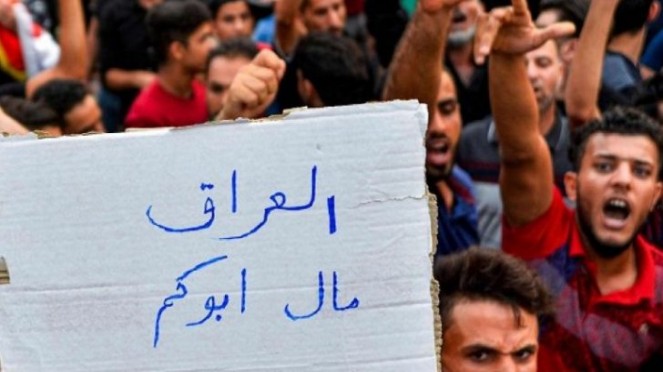 العراق
مال ابوكم